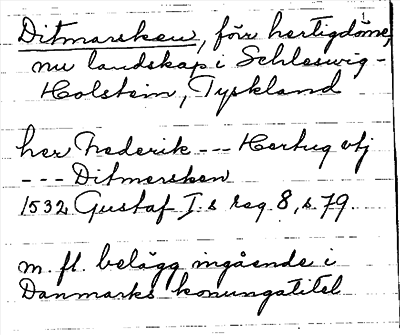 Ditmarsken, förr hertigdöme,
nu landskap i Schleswig-
Holstein, Tyskland
her Frederik --- Hertug vtj
--- Ditmersken
1532 Gustaf I.s reg 8, s 79.
m. fl. belägg ingående i
Danmarks konungatitel